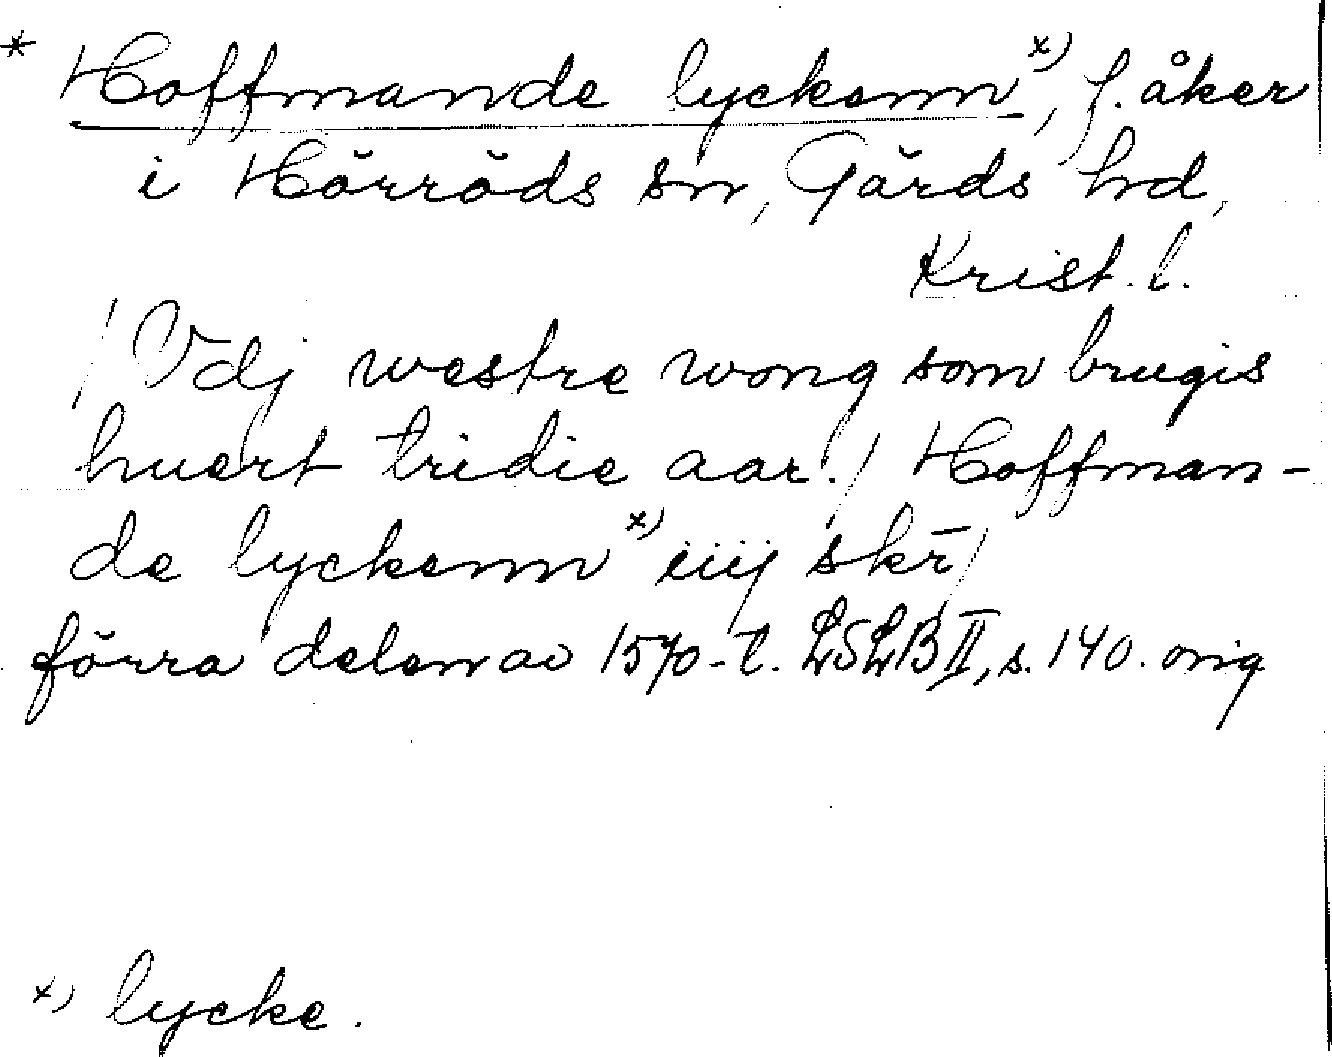 * Hoffmande lyckenn x), f. åker
i Hörröds sn, Gärds hd,
Krist. l.
/Vdj westre wong som brugis
huert tridie aar./ Hoffman-
de lyckenn x) iiij skr̄/
förra delen av 1570-t. LSLB II, s. 140. orig
x) lycke.